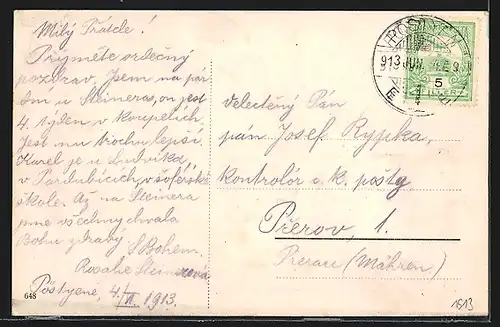 Milý Příteli!
Přijměte srdečný
pozdrav. Jsem na pár
dní u Steinera, on jest
4. týden v koupelích.
Jest mu trochu lepší.
Karel je u Ludvíka,
v Pardubicích, v šoférské
škole. Až na Steinera
jsme všechny chvála
Bohu zdrávy
S Bohem.
Rosalie Steinerová
Pöstyené, 4./VI. 1913.
648
PÖSTYÉN
913 JUN. 4
5
FILLÉR
velectěný Pán
pán Josef Rypka,
kontrolór c. k. pošty
Přerov, 1.
Prerau (Mähren)
1913